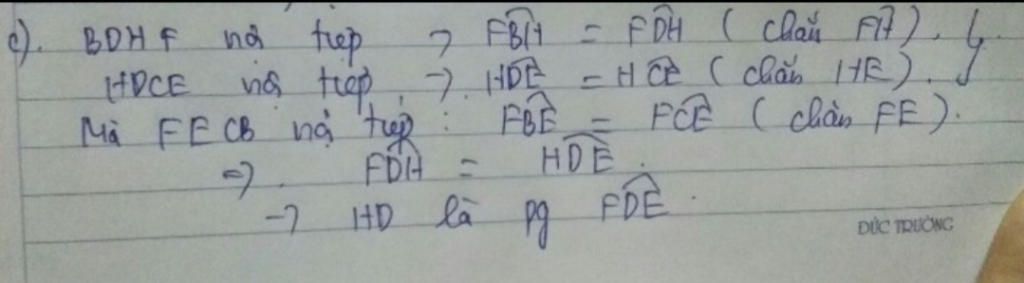 c). BDHF nội tiếp → FBH = FDH ( chắn FH ).
HDCE nội tiếp → HDE = HCE ( chắn HE ).
Mà FECB nội tiếp : FBE = FCE ( chắn FE ).
=> FDH = HDE.
→ HD là pg FDE.
ĐỨC TRƯỜNG